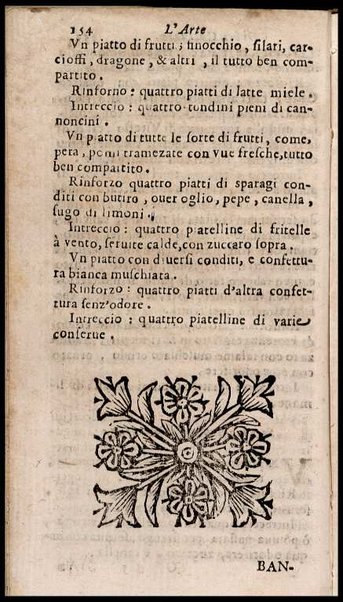 154 L'Arte
Vn piatto di frutti; finocchio, silari, car-
cioffi, dragone, & altri, il tutto ben com-
partito.
Rinforno: quattro piatti di latte miele.
Intreccio: quattro tondini pieni di can-
noncini.
Vn piatto di tutte le sorte di frutti, come,
pera, pomi tramezate con vue fresche, tutto
ben compartito.
Rinforzo quattro piatti di sparagi con-
diti con butiro, ouer oglio, pepe, canella,
sugo di limoni.
Intreccio: quattro piatelline di fritelle
à vento, seruite calde, con zuccaro sopra.
Vn piatto con diuersi conditi, e confettu-
ra bianca muschiata.
Rinforzo: quattro piatti d'altra confet-
tura senz'odore.
Intreccio: quattro piatelline di varie
conserue.
BAN-